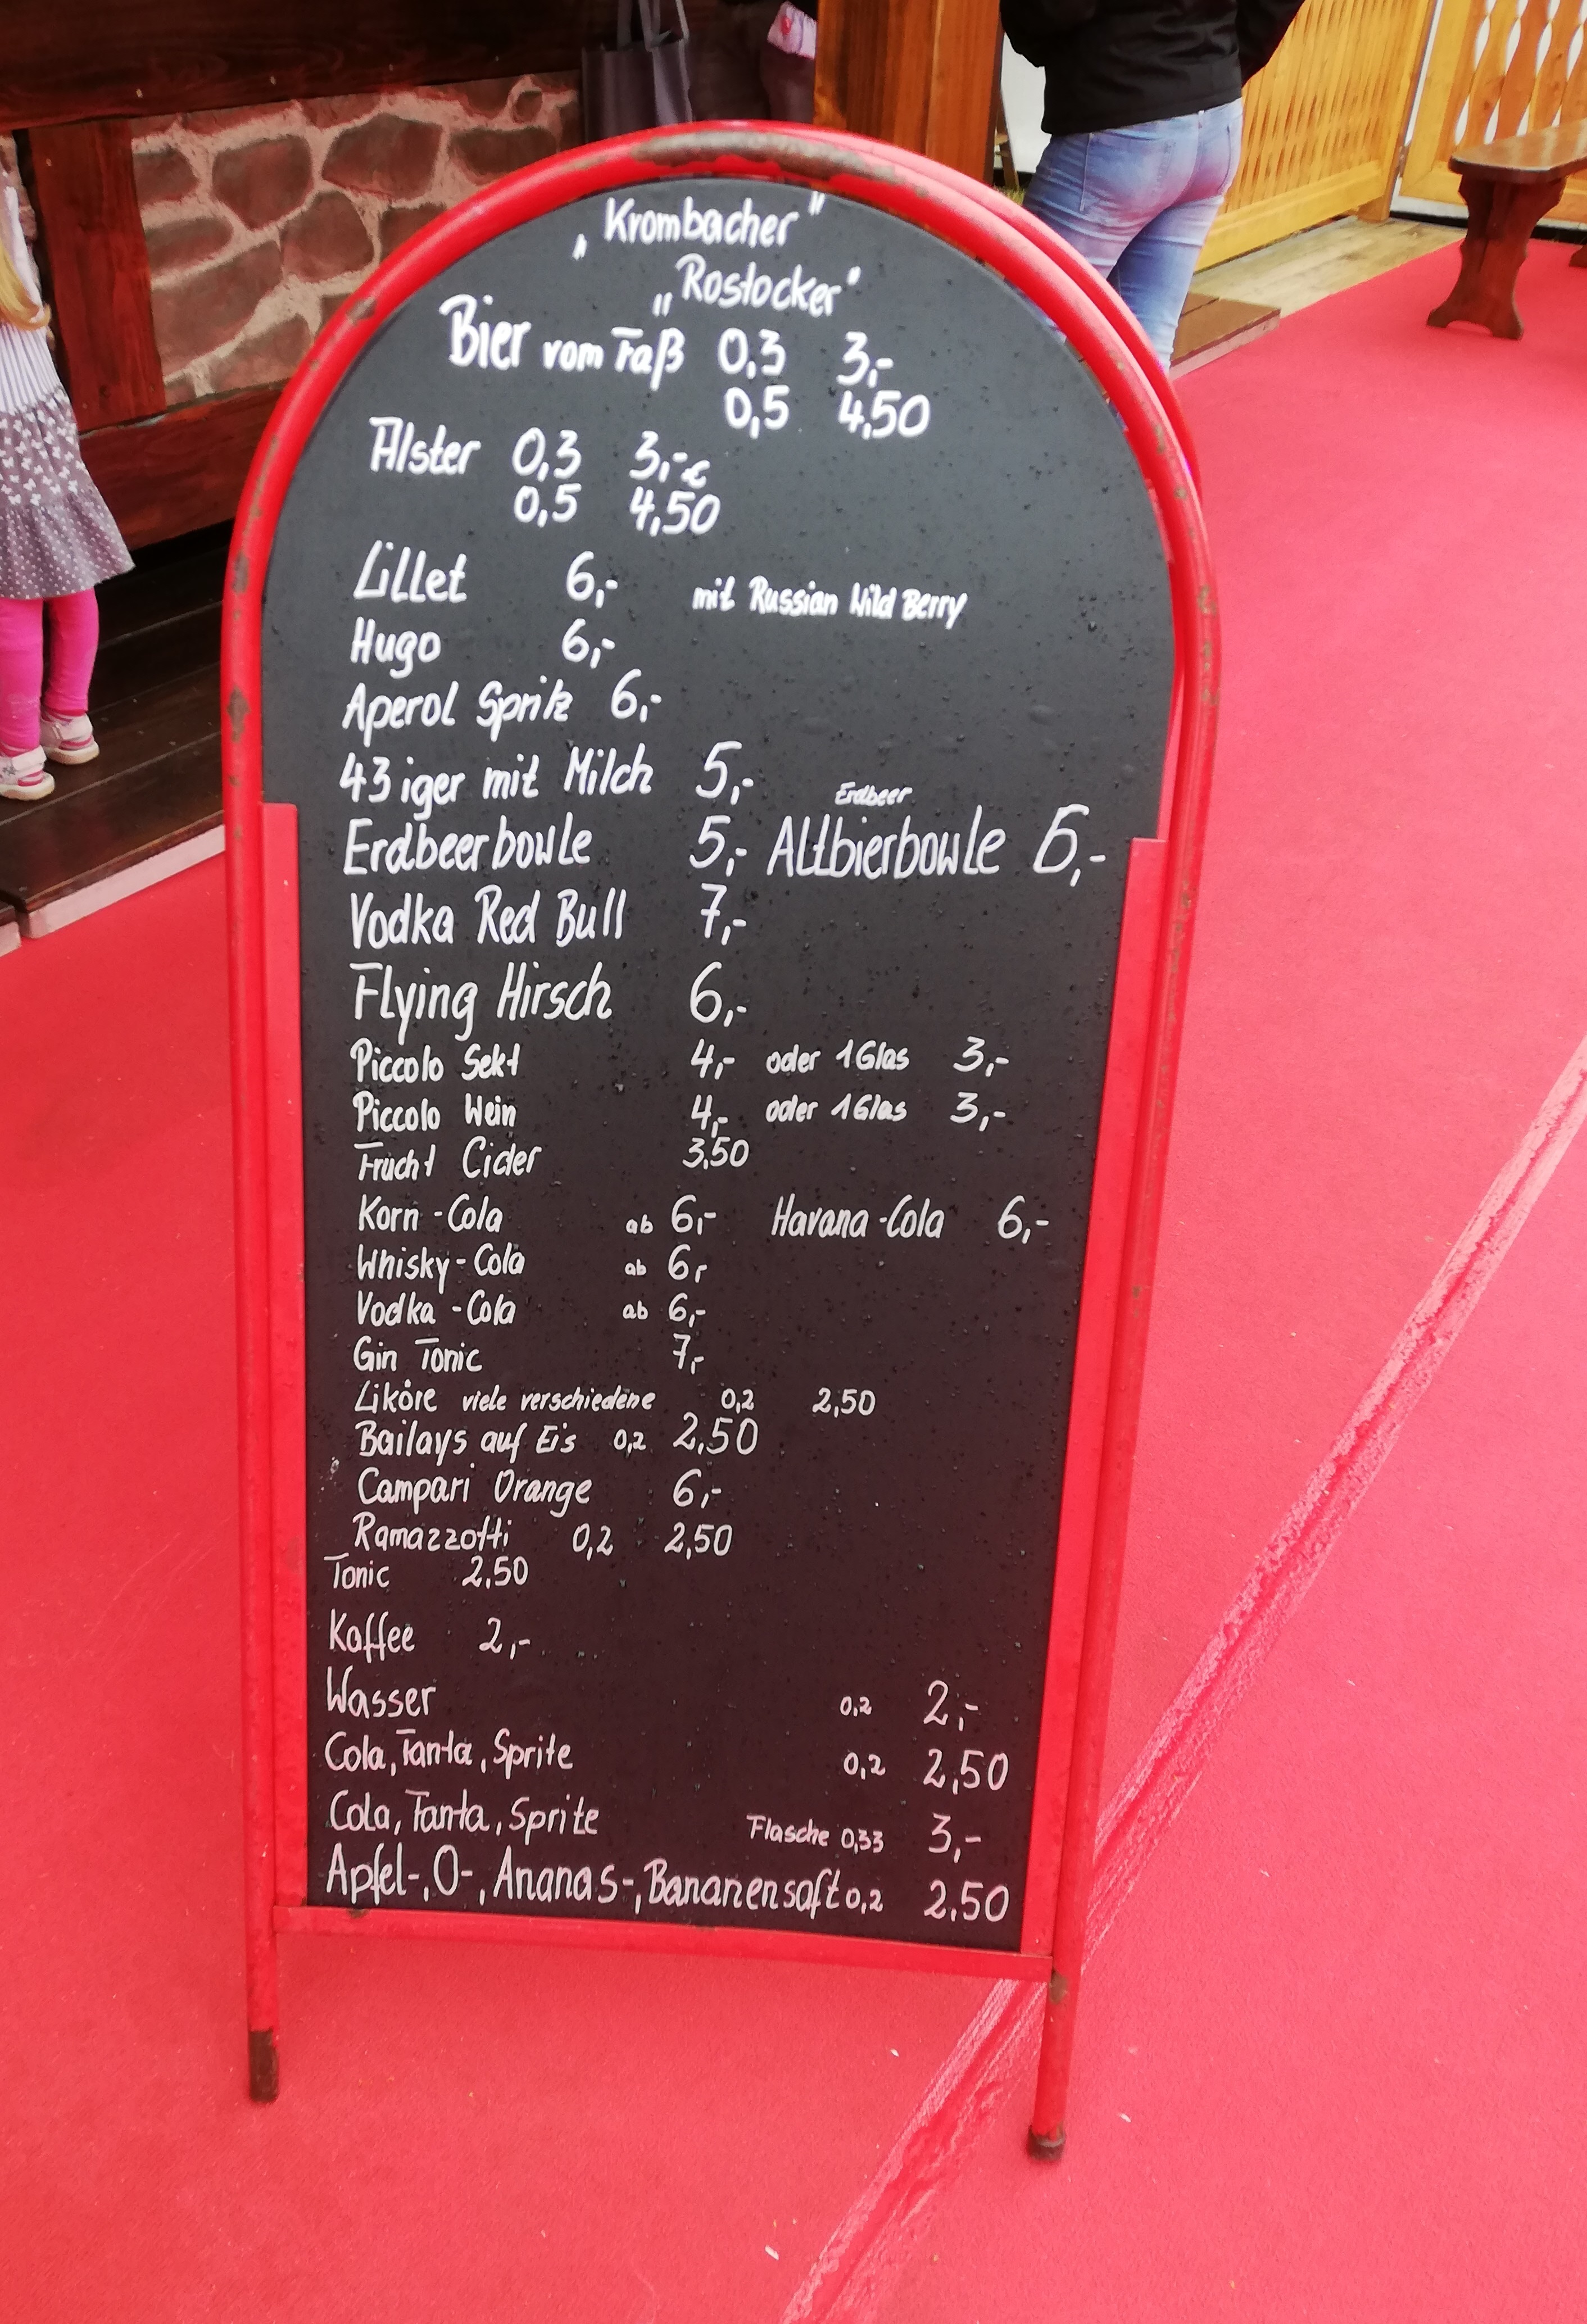 „Krombacher"
„Rostocker"
Bier vom Faß 0,3 3,-
0,5 4,50
Alster 0,3 3,-€
0,5 4,50
Lillet 6,- mit Russian Wild Berry
Hugo 6,-
Aperol Spritz 6,-
43iger mit Milch 5,-
Erdbeer
Erdbeerbowle 5,- Altbierbowle 6,-
Vodka Red Bull 7,-
Flying Hirsch 6,-
Piccolo Sekt 4,- oder 1 Glas 3,-
Piccolo Wein 4,- oder 1 Glas 3,-
Frucht Cider 3,50
Korn-Cola ab 6,- Havana-Cola 6,-
Whisky-Cola ab 6,-
Vodka-Cola ab 6,-
Gin Tonic 7,-
Liköre viele verschiedene 0,2 2,50
Bailays auf Eis 0,2 2,50
Campari Orange 6,-
Ramazzotti 0,2 2,50
Tonic 2,50
Kaffee 2,-
Wasser 0,2 2,-
Cola, Fanta, Sprite 0,2 2,50
Cola, Fanta, Sprite Flasche 0,33 3,-
Apfel-, O-, Ananas-, Bananensaft 0,2 2,50